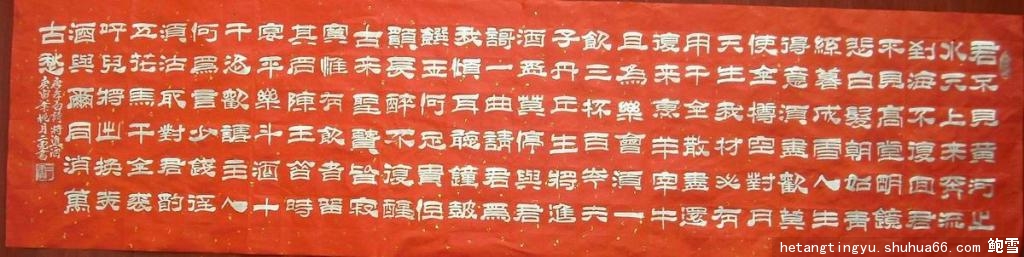 君不見黃河之
水天上來奔流
到海不復回君
不見高堂明鏡
悲白髮朝如青
絲暮成雪人生
得意須盡歡莫
使金樽空對月
天生我材必有
用千金散盡還
復來烹羊宰牛
且為樂會須一
飲三杯百岑夫
子丹丘生將進
酒盃莫停與君
謌一曲請君為
我傾耳聽鐘鼓
饌玉何足貴但
願長醉不復醒
古來聖賢皆寂
寞惟有飲者留
其名陳王昔時
宴平樂斗酒十
千恣歡謔主人
何為言少錢徑
須沽取對君酌
五花馬千金裘
呼兒將出換美
酒與爾同消萬
古愁
唐李白詩將進酒
庚寅年桃月書
hetangtingyu.shuhua66.com 鲍雪